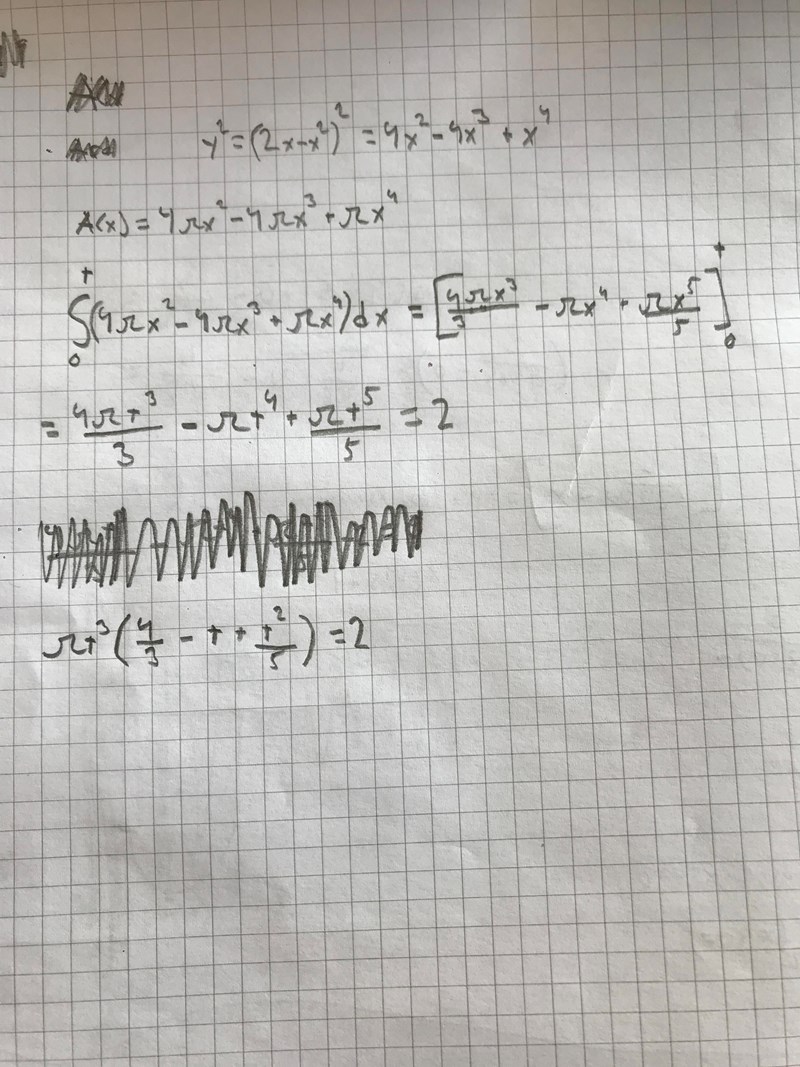 y² = (2x-x²)² = 4x² - 4x³ + x⁴
A(x) = 4πx² - 4πx³ + πx⁴
∫₀ᵗ (4πx² - 4πx³ + πx⁴)dx = [4πx³/3 - πx⁴ + πx⁵/5]₀ᵗ
= 4πt³/3 - πt⁴ + πt⁵/5 = 2
πt³(4/3 - t + t²/5) = 2